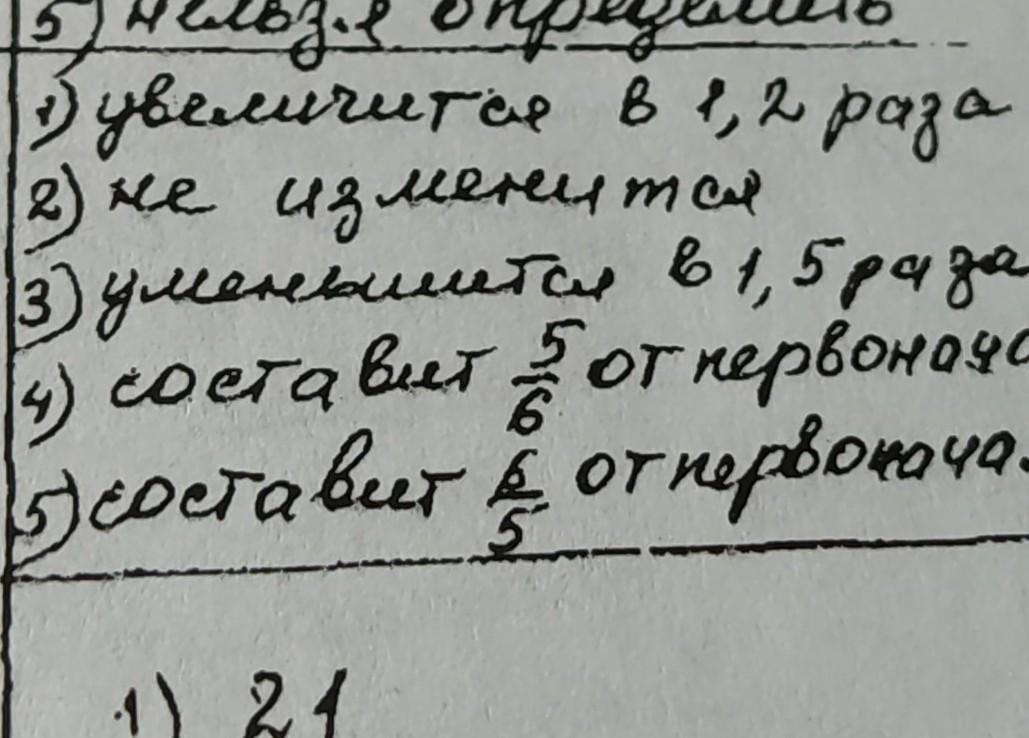 5) нельзя определить
1) увеличится в 1,2 раза
2) не изменится
3) уменьшится в 1,5 раза
4) составит 5/6 от первонача
5) составит 6/5 от первонача
1) 21